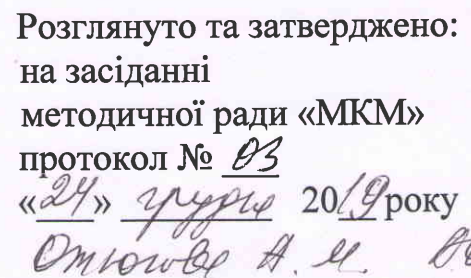 Розглянуто та затверджено:
на засіданні
методичної ради «МКМ»
протокол № 03
«24» грудня 2019 року
А. М.